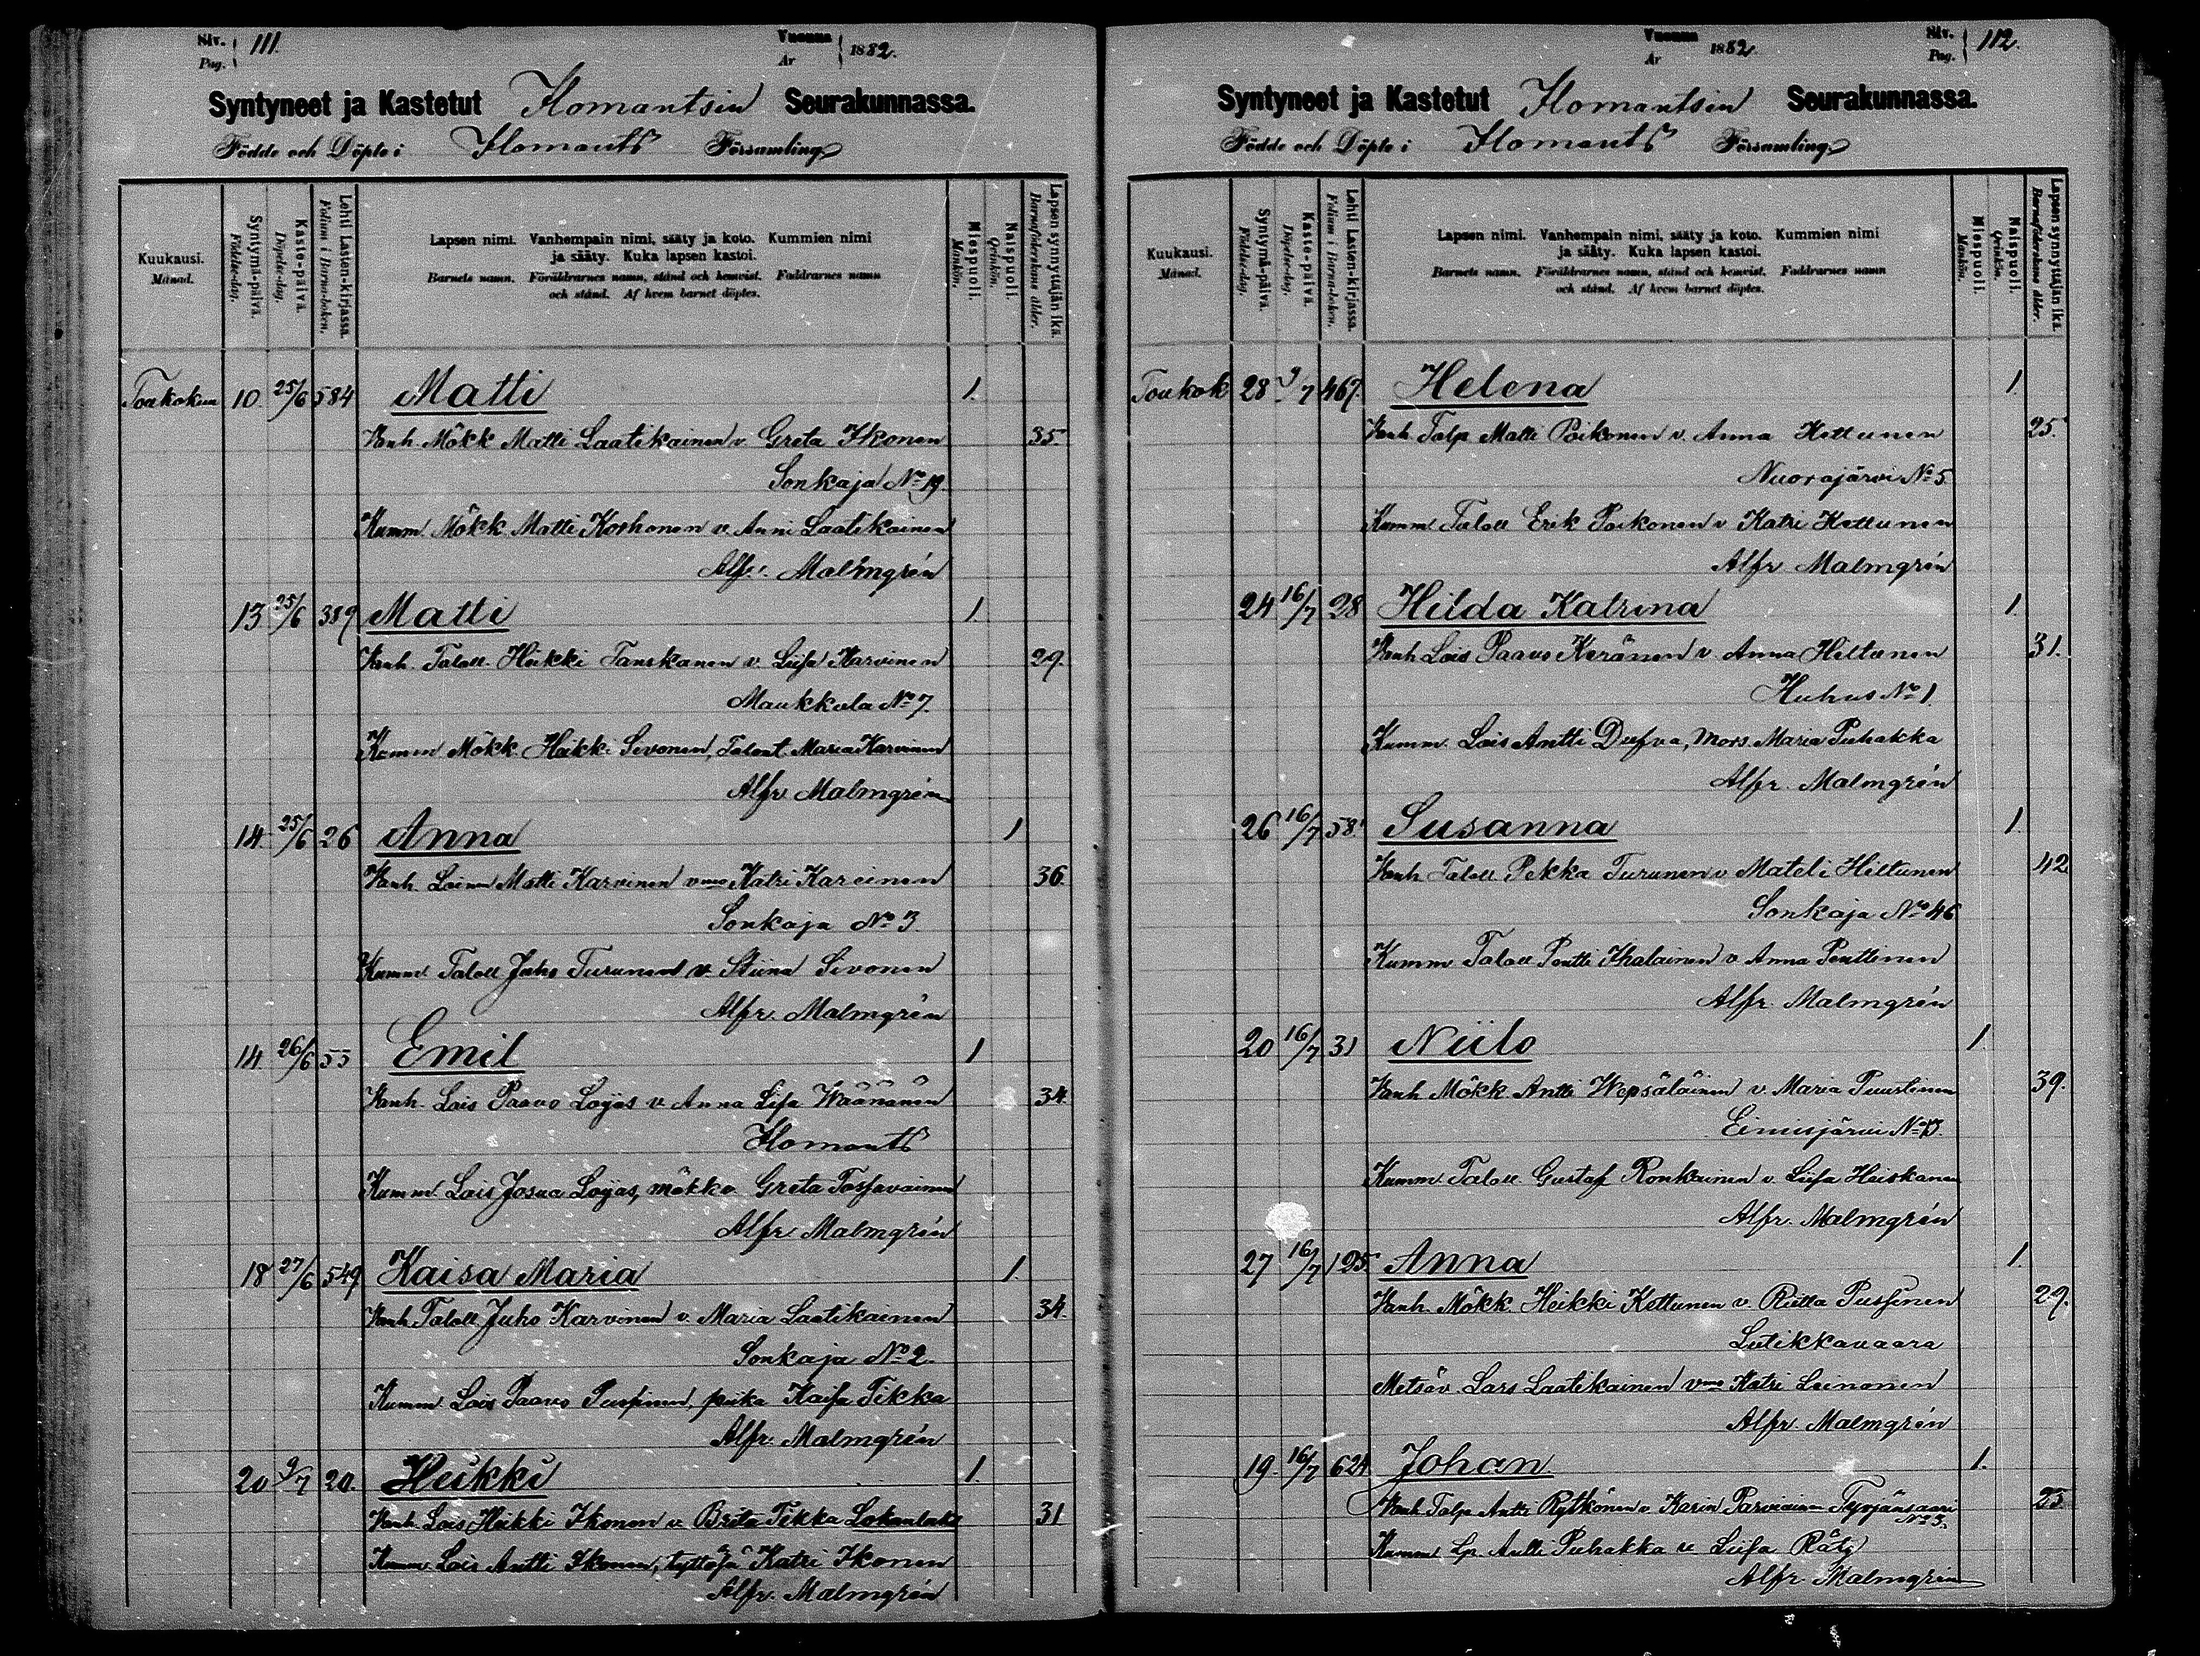 Siv. Pag. 111.
Vuonna År 1882.
Syntyneet ja Kastetut Ilomantsin Seurakunnassa.
Födde och Döpte i Ilomants Församling
Kuukausi. Månad.
Syntymä-päivä. Födelse-dag.
Kaste-päivä. Döpelse-dag.
Lehti Lasten-kirjassa. Folium i Barna-boken.
Lapsen nimi. Vanhempain nimi, sääty ja koto. Kummien nimi
ja sääty. Kuka lapsen kastoi.
Barnets namn. Föräldrarnes namn, stånd och hemvist. Faddrarnes namn
och stånd. Af hvem barnet döptes.
Miespuoli. Mankön.
Naispuoli. Qvinkön.
Lapsen synnyttäjän ikä. Barnaföderskans ålder.
Toukokuu 10 25/6 584 Matti 1.
Vanh. Mökk Matti Laatikainen v. Greta Ikonen 35
Sonkaja No 19.
Kumm. Mökk Matti Korhonen v. Anni Laatikainen
Alfr. Malmgrén
13 25/6 389 Matti 1
Vanh. Taloll. Heikki Tanskanen v. Liisa Karvinen 29.
Maukkula No 7.
Kumm Mökk Heikki Sivonen, Talont. Maria Karvinen
Alfr Malmgrén
14 25/6 26 Anna 1
Vanh. Loinen Matti Karvinen vmo Katri Kareinen 36.
Sonkaja No 3
Kumm Taloll Juho Turunen v. Stiina Sivonen
Alfr. Malmgrén
14 26/6 55 Emil 1
Vanh. Lois Paavo Loijas v Anna Lisa Wäänänen 34
Ilomants
Kumm Lois Josua Loijas, mökk. Greta Tossavainen
Alfr Malmgrén
18 27/6 549 Kaisa Maria 1.
Vanh Taloll Juho Karvinen v. Maria Laatikainen 34.
Sonkaja No 2.
Kumm Lois Paavo Pussinen, piika Kaisa Tikka
Alfr. Malmgrén
20 9/7 20. Heikki 1.
Vanh. Lois Heikki Ikonen v. Brita Tikka 31
Kumm Lois Antti Ikonen, Katri Ikonen
Alfr. Malmgrén
Vuonna År 1882.
Siv. Pag. 112.
Syntyneet ja Kastetut Ilomantsin Seurakunnassa.
Födde och Döpte i Ilomants Församling
Kuukausi. Månad.
Syntymä-päivä. Födelse-dag.
Kaste-päivä. Döpelse-dag.
Lehti Lasten-kirjassa. Folium i Barna-boken.
Lapsen nimi. Vanhempain nimi, sääty ja koto. Kummien nimi
ja sääty. Kuka lapsen kastoi.
Barnets namn. Föräldrarnes namn, stånd och hemvist. Faddrarnes namn
och stånd. Af hvem barnet döptes.
Miespuoli. Mankön.
Naispuoli. Qvinkön.
Lapsen synnyttäjän ikä. Barnaföderskans ålder.
Toukok 28 9/7 467. Helena 1.
Vanh. Talp Matti Poikonen v. Anna Kettunen 25.
Nuorajärvi No 5.
Kumm Taloll Erik Poikonen v Katri Kettunen
Alfr Malmgrén
24 16/7 28 Hilda Katrina 1.
Vanh Lois Paavo Keränen v. Anna Hiltunen 31.
Huhus No 1
Kumm. Lois Antti Dufva, Mors. Maria Puhakka
Alfr. Malmgrén
26 16/7 58. Susanna 1.
Vanh Taloll Pekka Turunen v Mateli Hiltunen 42
Sonkaja No 46
Kumm Taloll Pentti Ihalainen v. Anna Penttinen
Alfr. Malmgrén
20 16/7 31 Niilo 1.
Vanh Mökk. Antti Wepsäläinen v. Maria Puustinen 39.
Eimisjärvi No 13.
Kumm Taloll Gustaf Ronkainen v. Liisa Heiskanen
Alfr. Malmgrén
27 16/7 125. Anna 1.
Vanh. Mökk. Heikki Kettunen v. Riitta Pussinen 29.
Lutikkavaara
Metsäv. Lars Laatikainen vmo Katri Leinonen
Alfr. Malmgrén
19. 16/7 624 Johan 1.
Vanh Talp Antti Rytkönen v. Karin Parviainen Tyrjänsaari No 3. 25
Kumm Lp. Antti Puhakka v Liisa Räty
Alfr Malmgrén